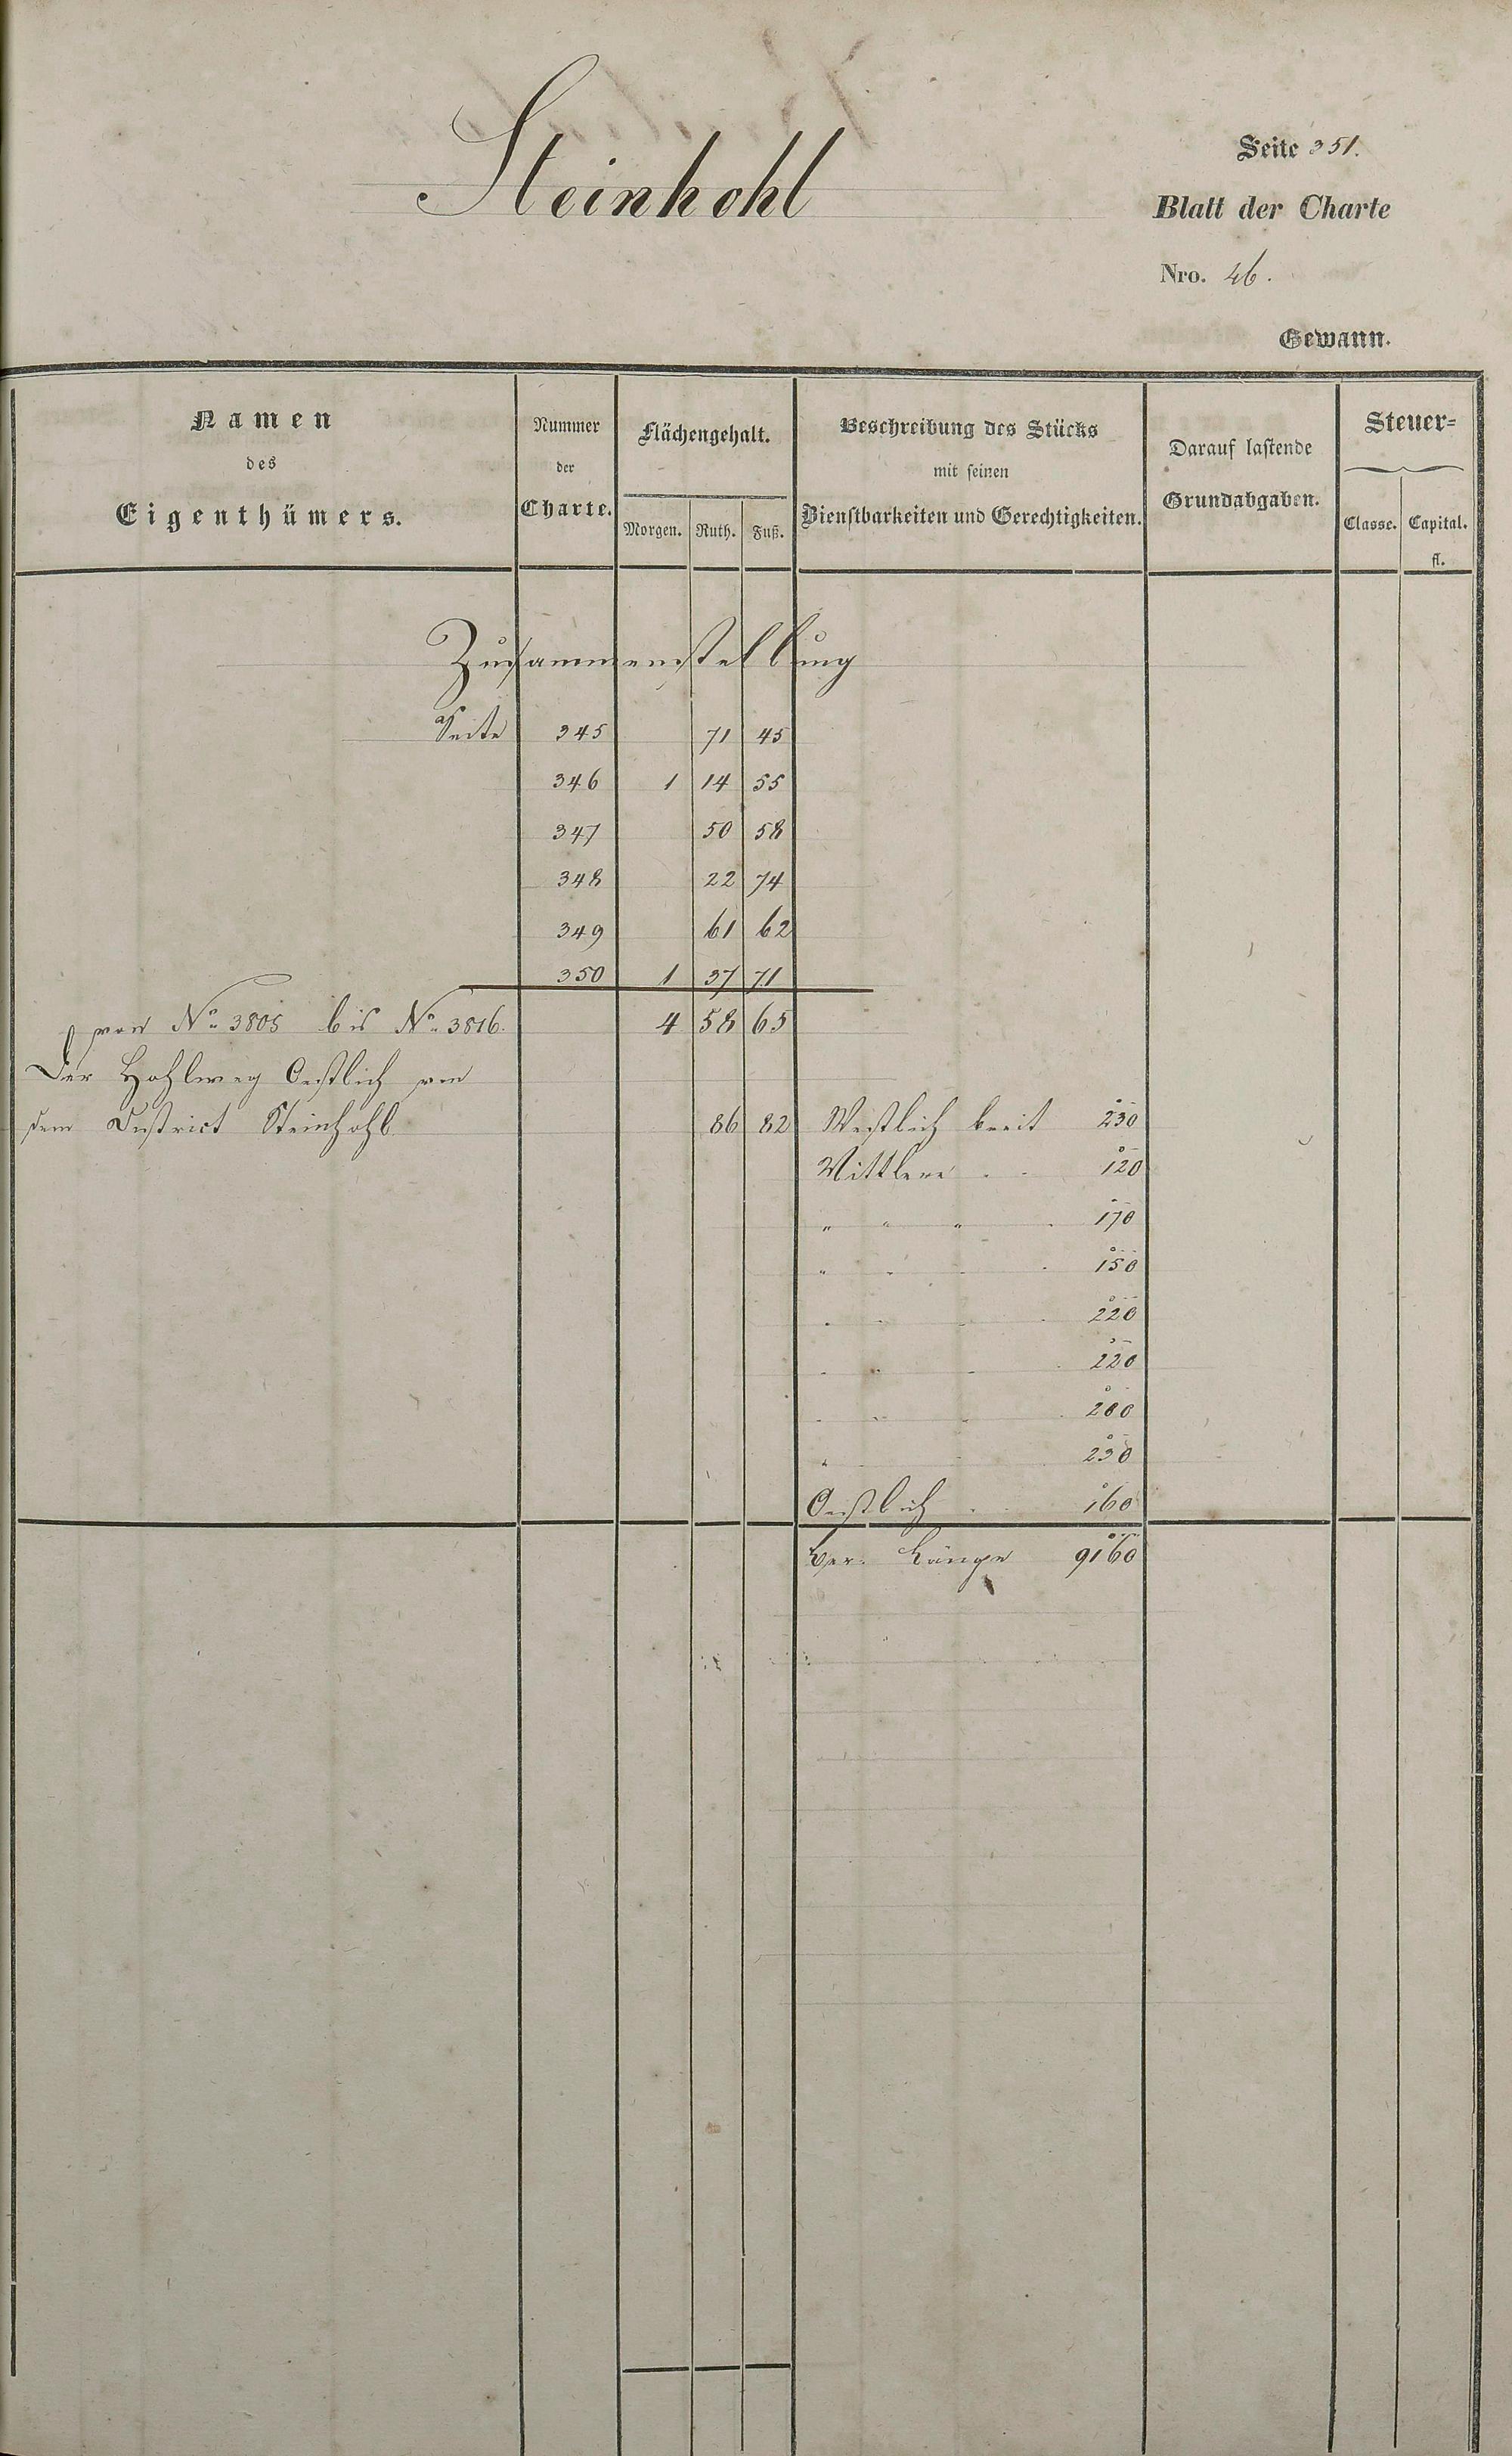 Steinhohl
Seite 351.
Blatt der Charte
Nro. 46.
Gewann.
Namen
des
Eigenthümers.
Nummer
der
Charte.
Flächengehalt.
Morgen. Ruth. Fuß.
Beschreibung des Stücks
mit seinen
Dienstbarkeiten und Gerechtigkeiten.
Darauf lastende
Grundabgaben.
Steuer=
Classe. Capital.
fl.
Zusammenstellung
Seite 345 71 45
346 1 14 55
347 50 58
348 22 74
349 61 62
350 1 37 71
von No 3805 bis No 3816. 4 58 65
Der Hohlweg Oestlich von
dem District Steinhohl 86 82 Westlich breit 230
Mittlere 120
" " " 170
" 150
220
220
200
" 230
Oestlich 160
Ger. Länge 9160